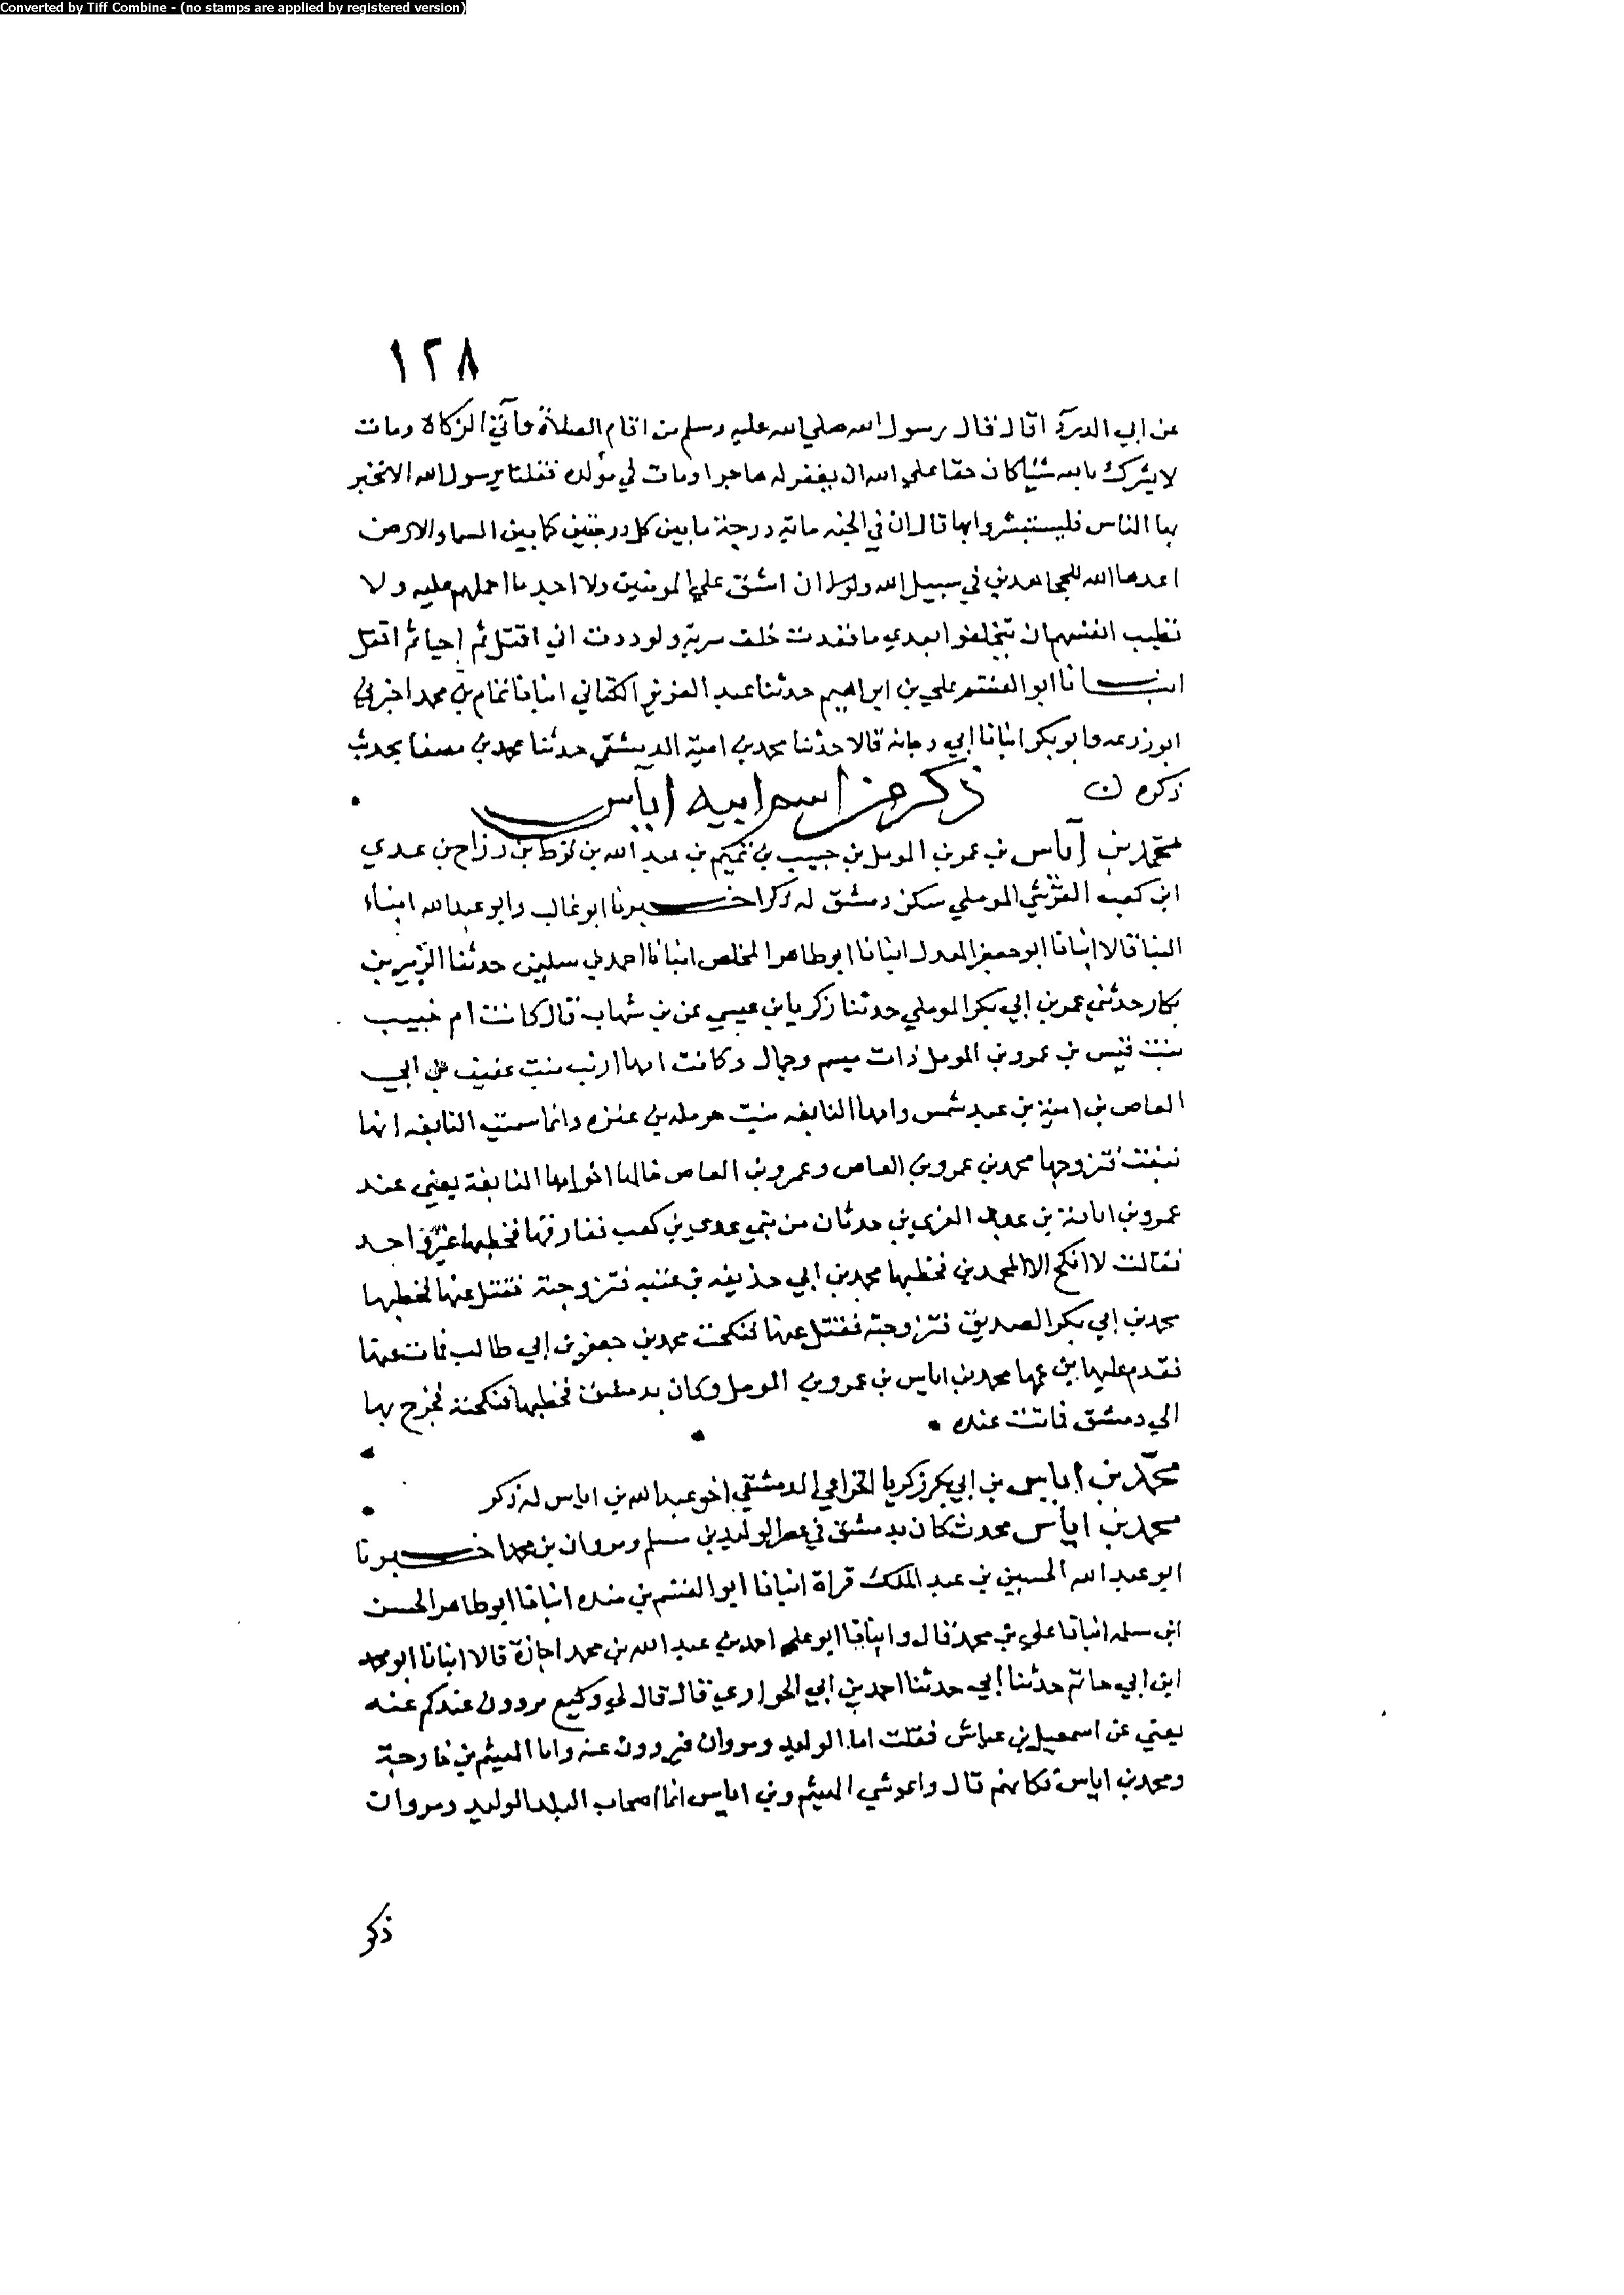 Converted by Tiff Combine - (no stamps are applied by registered version)
١٢٨
عن ابي الدردآ قال قال رسول الله صلي الله عليه وسلم من اقام الصلاة وآتي الزكاة ومات
لا يشرك بالله شيئا كان حقا علي الله ان يغفر له هاجر او مات في مولده فقلنا يرسول الله الا تخبر
بها الناس فليستبشروا بها قال ان في الجنه مايه درجة ما بين كل درجتين كما بين السماء والارض
اعدها الله للمجاهدين في سبيل الله ولولا ان اشق علي المومنين ولا اجد ما احملهم عليه ولا
تطيب انفسهم ان يتخلفوا بعدي ما قعدت خلف سرية ولوددت اني اقتل ثم احيا ثم اقتل
انبانا ابو القسم علي بن ابراهيم حدثنا عبد العزيز الكتاني انبانا تمام بن محمد اخبرني
ابو زرعه وابو بكر انبانا ابي دجانه قالا حدثنا محمد بن امية الدمشقي حدثنا محمد بن مصفا بحديث
ذكره
ذكر من اسم ابيه اياس
محمد بن اياس بن عمرو بن المومل بن حبيب بن تميم بن عبد الله بن قرط بن رزاح بن عدي
ابن كعب القرشي الموملي سكن دمشق له ذكر اخبرنا ابو غالب وابو عبد الله ابناء
البنا قالا انبانا ابو جعفر المعدل انبانا ابو طاهر المخلص انبانا احمد بن سليمن حدثنا الزبير بن
بكار حدثني عمرو بن ابي بكر الموملي حدثنا زكريا بن عيسي عن بن شهاب قال كانت ام خبيب
بنت قيس بن عمرو بن المومل ذات ميسم وجمال وكانت امها ارنب بنت عفيف بن ابي
العاص بن امية بن عبد شمس وامها النابغه بنت حرمله بن عنزه وانما سميت النابغه انها
نبغت تزوجها محمد بن عمرو بن العاص وعمرو بن العاص خالها اخو امها النابغة يعني عند
عمرو بن ابانة بن عبد العزي بن حدثان من بني عدي بن كعب ففارقها فخطبها غير واحد
فقالت لا انكح الا المحمدين فخطبها محمد بن ابي حذيفه بن عتبه فتزوجته فقتل عنها فخطبها
محمد بن ابي بكر الصديق فتزوجته فقتل عنها فنكحت محمد بن جعفر بن ابي طالب فمات عنها
فقدم عليها بن عمها محمد بن اياس بن عمرو بن المومل وكان بدمشق فخطبها فنكحته فخرج بها
الي دمشق فماتت عنده
محمد بن اياس بن ابي بكر زكريا الخزاعي الدمشقي اخو عبد الله بن اياس له ذكر
محمد بن اياس محدث كان بدمشق في عصر الوليد بن مسلم ومروان بن محمد اخبرنا
ابو عبد الله الحسين بن عبد الملك قراة انبانا ابو القسم بن منده انبانا ابو طاهر الحسن
ابن سلمه انبانا علي بن محمد قال وانبانا ابو علي احمد بن عبد الله بن محمد اجازة قالا انبانا ابو محمد
ابن ابي حاتم حدثنا ابي حدثنا احمد بن ابي الحواري قال قال لي وكيع يروون عندكم عنه
يعني عن اسمعيل بن عياش فقلت اما الوليد ومروان فيروون عنه واما الهيثم بن خارجة
ومحمد بن اياس فكانهم قال واي شي الهيثم وبن اياس انما اصحاب البلد الوليد ومروان
ذكر